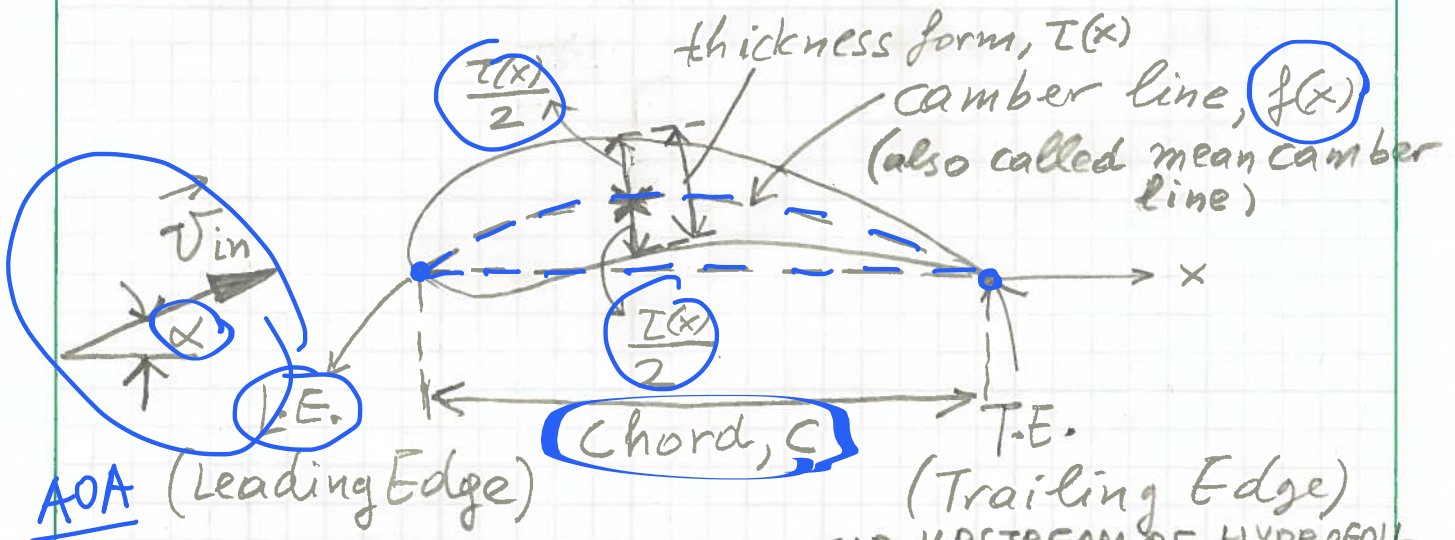 thickness form, τ(x)
τ(x)/2
camber line, f(x)
(also called mean camber
line)
V in
α
x
τ(x)/2
L.E.
Chord, c
T.E.
AOA
(Leading Edge)
(Trailing Edge)
UPSTREAM OF HYDROFOIL